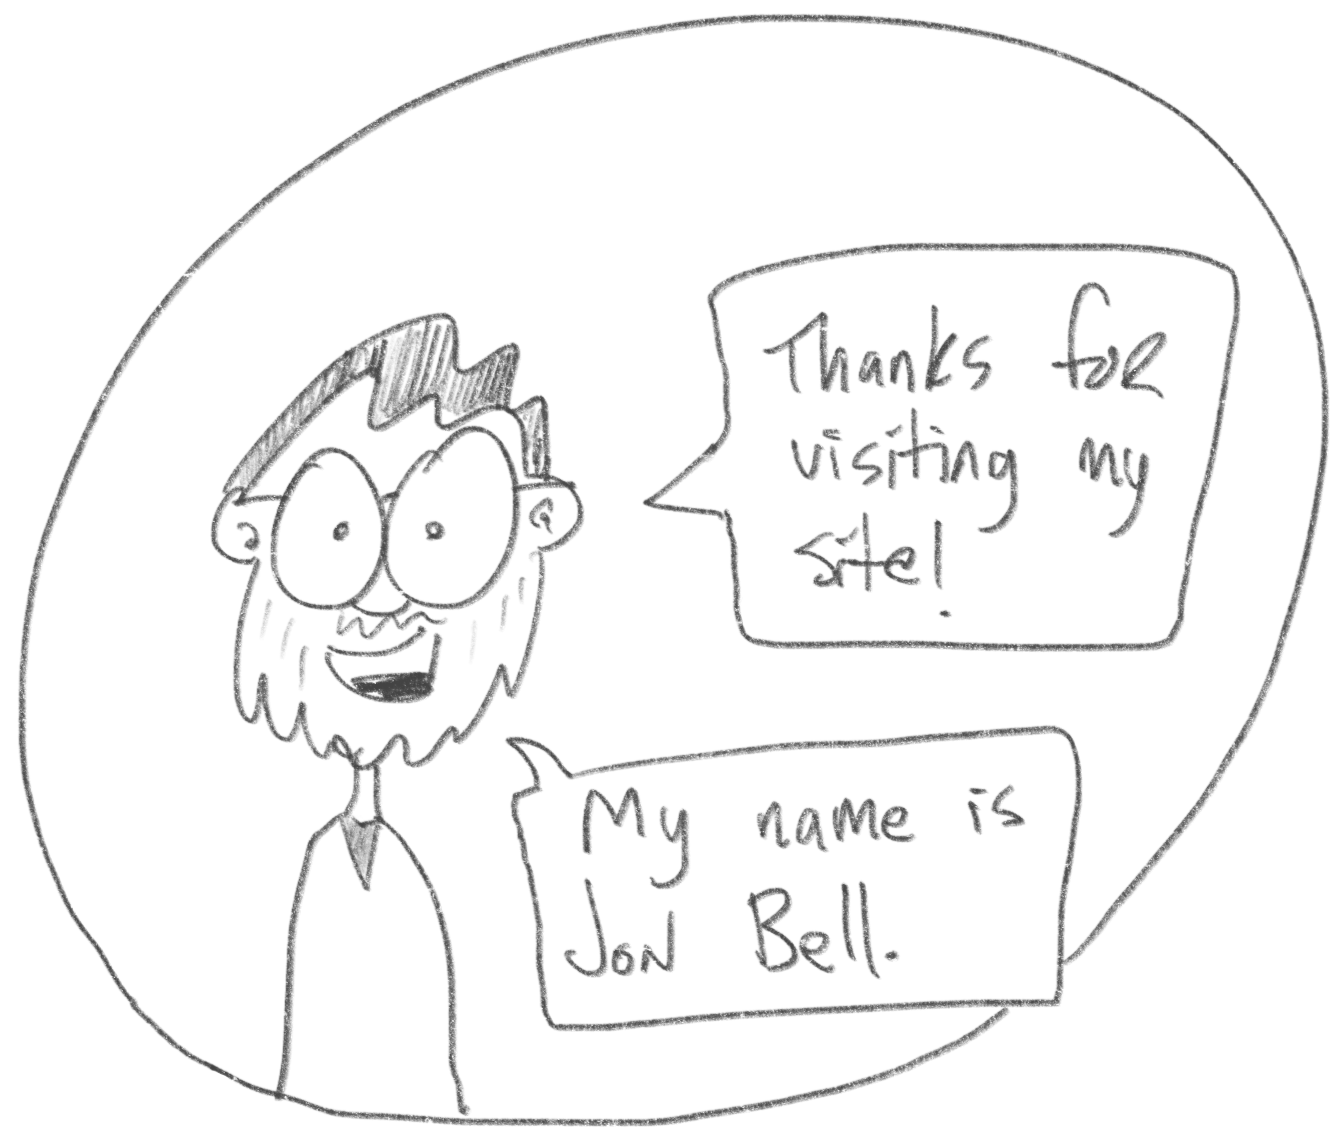 Thanks for
visiting my
site!
My name is
Jon Bell.